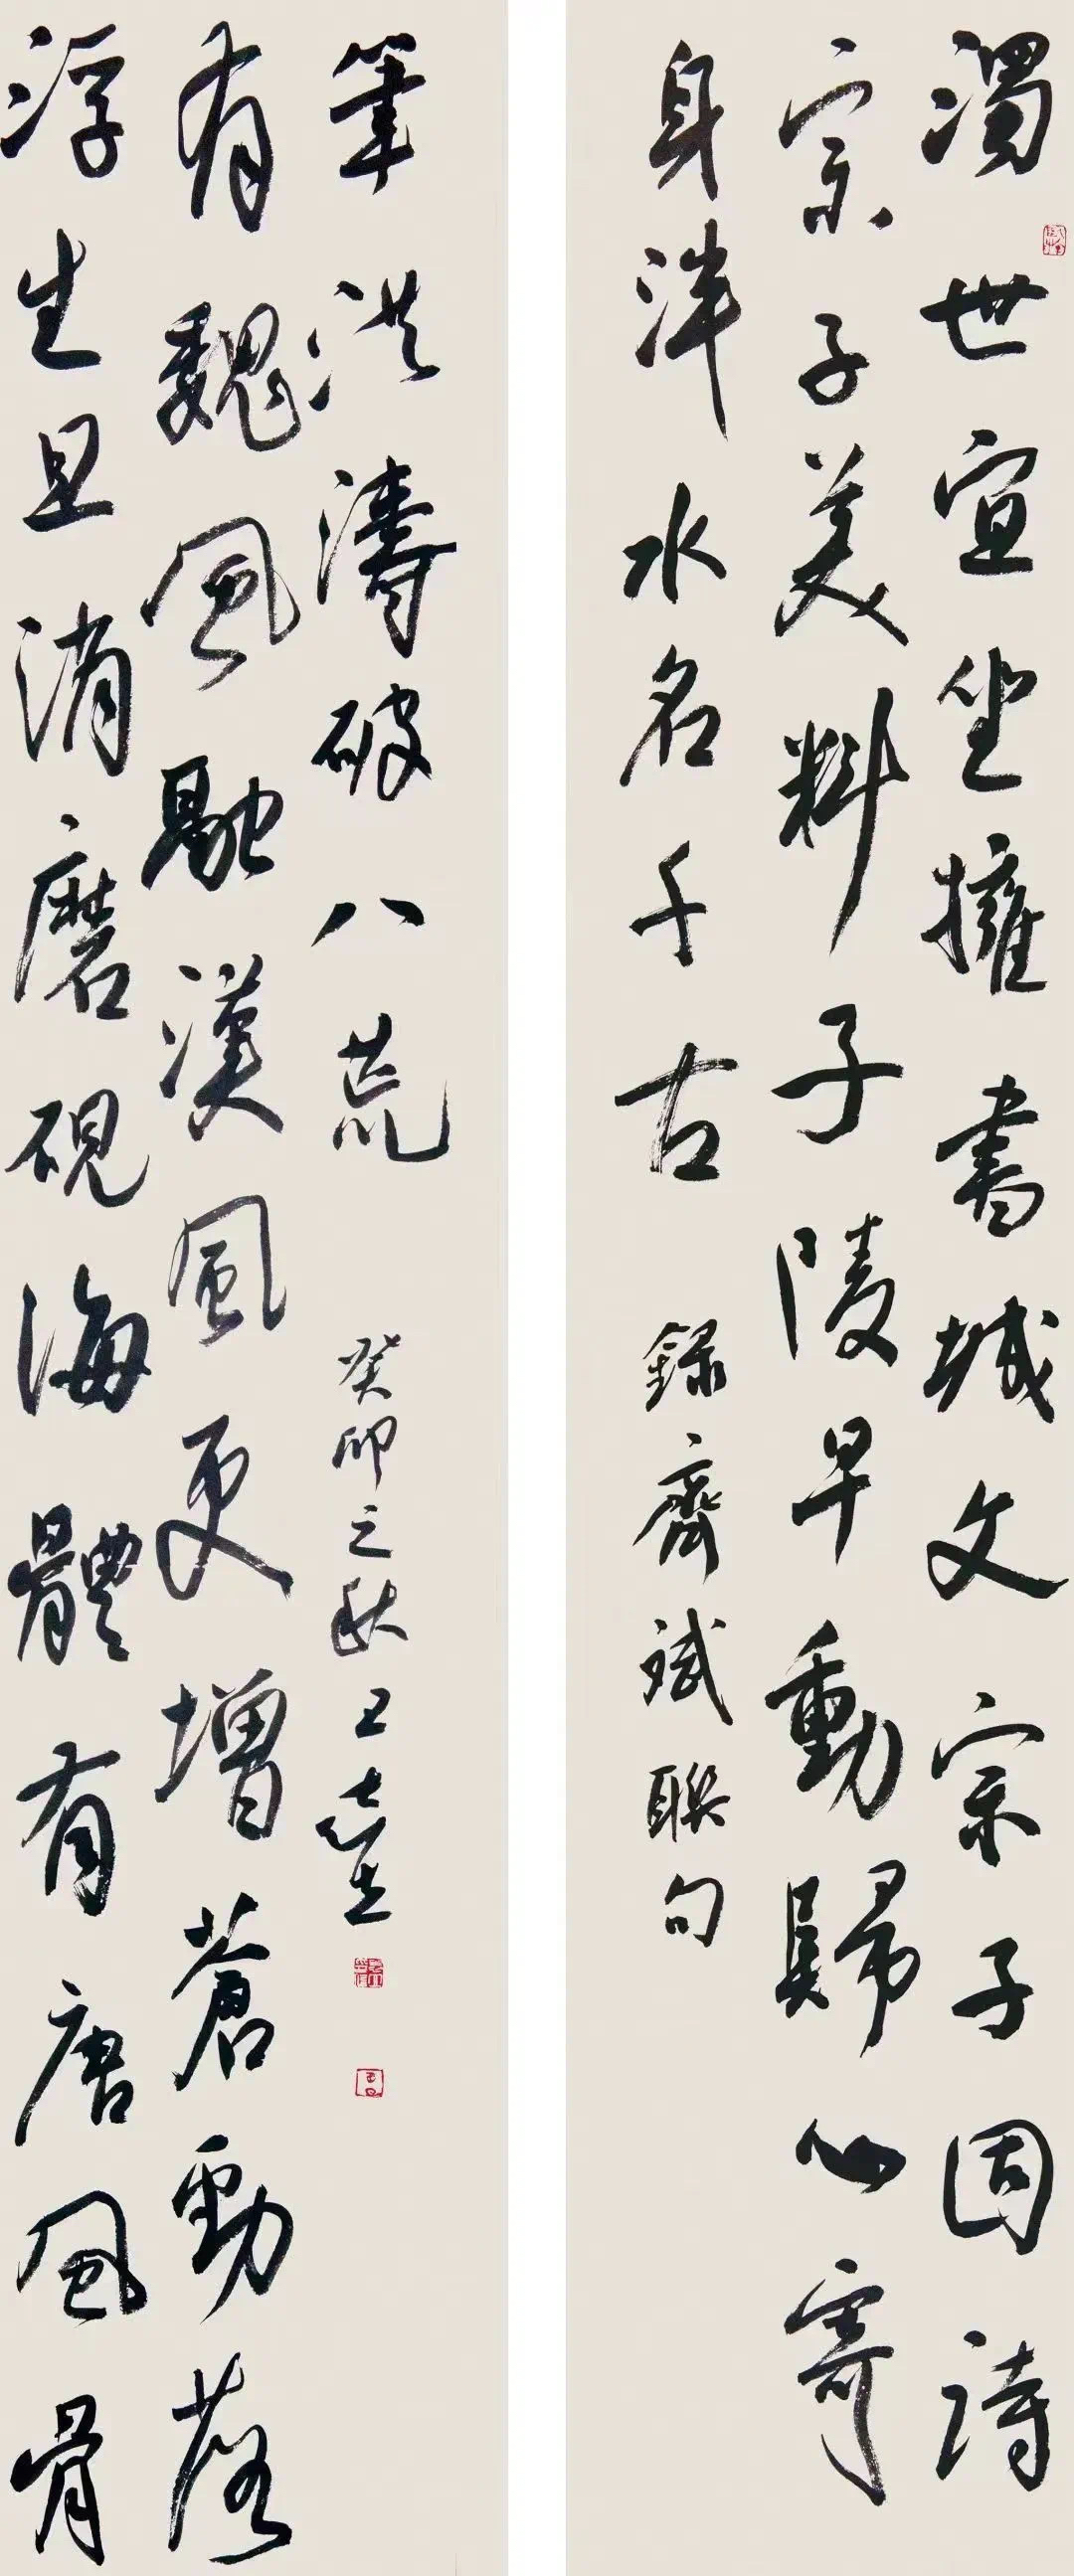 濁世宜坐擁書城文宗子固詩
宗子美料子陵早動歸心寄
身泮水名千古
錄齊斌聯句
浮生且消磨硯海體有唐風骨
有魏風融漢風更增蒼勁落
筆洪濤破八荒
癸卯之秋